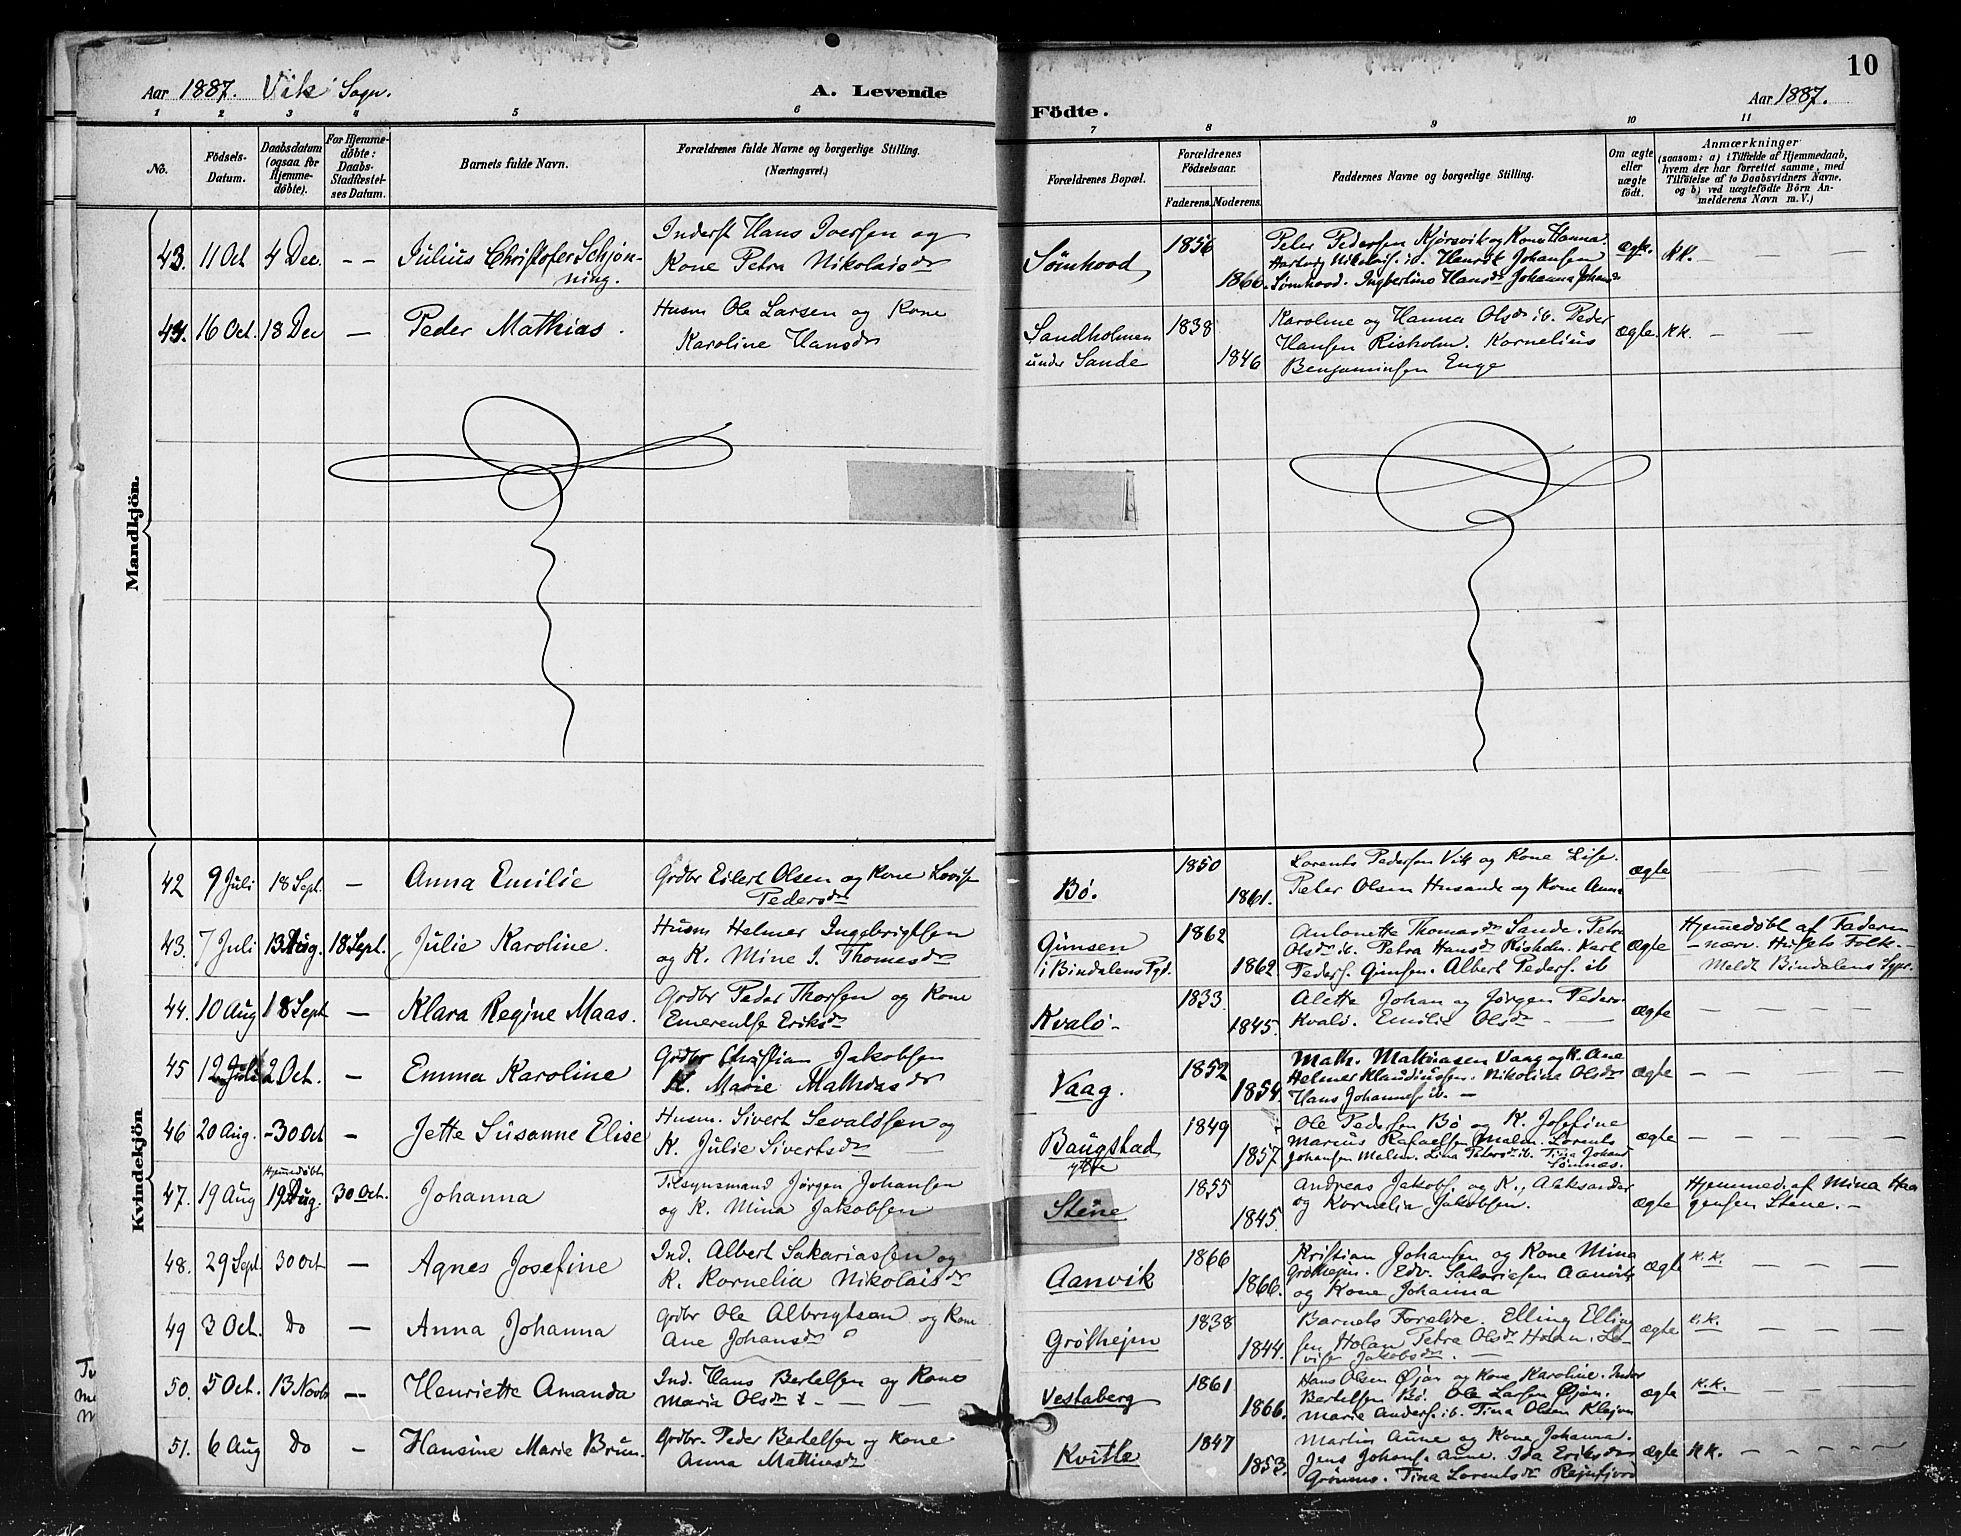 Aar 1887. Vik Sogn. A. Levende
Fødte. Aar 1887. 10
1 2 3 4 5 6 7 8 9 10 11
No. Fødsels-Datum. Daabsdatum (ogsaa for Hjemmedøbte). For Hjemmedøbte: Daabs-Stadfæstelses Datum. Barnets fulde Navn. Forældrenes fulde Navne og borgerlige Stilling. (Næringsvei.)
Forældrenes Bopæl. Forældrenes Fødselsaar. Faderens. Moderens. Faddernes Navne og borgerlige Stilling. Om ægte eller uægte født. Anmærkninger (saasom: a) i Tilfælde af Hjemmedaab, hvem der har forrettet samme, med Tilføielse af to Daabsvidners Navne, og b) ved uægtefødte Børn Anmelderens Navn m. V.)
Mandkjön.
43. 11 Oct 4 Dec. – – Julius Christofer Schjønning. Inderst Hans Iversen og Kone Petra Nikolaisdr
Sømhovd 1856 1866. Peter Pedersen Kjørsvik og Kone Hanna. Hartvig Nikolais. ib. Henrik Johansen Sømhovd. Ingbertine Hansdr Johanna Johansdr ægte. KK. – – –
44. 16 Oct. 18 Dec – Peder Mathias. Husm Ole Larsen og Kone Karoline Hansdr
Sandholmen under Sande 1838 1846 Karoline og Hanna Olsdr ib. Peder Hansen Risholm. Kornelius Benjaminsen Enge ægte. KK. – – –
Kvindekjön
42 9 Juli 18 Sept. – Anna Emilie Grdbr Eilert Olsen og Kone Lovise Pedersdr
Bø. 1850 1861. Lorents Pedersen Vik og Kone Lise. Peter Olsen Husande og Kone Anna ægte – – – –
43. 7 Juli 13 Aug. 18 Sept. Julie Karoline. Husm Helmer Ingebrigtsen og K. Mine J. Thomesdr
Gimsen i Bindalens Pgd. 1862 1862 Antonette Thomasdr Sande. Petra Olsdr ib. Petra Hansdr Risholm. Karl Peders. Gimsen. Albert Peders. ib ægte Hjemmedøbt af Faderen – nærv. Husets Folk. – Meldt Bindalens Sgpr.
44. 10 Aug 18 Sept – Klara Regine Maas. Grdbr Peder Thorsen og Kone Emerentse Eriksdr
Kvalø – 1833 1845. Aletta Johan og Jørgen Peders. Kvalø. Emilie Olsdr – – ægte – – – –
45 12 Juli 2 Oct. – Emma Karoline Grdbr Christian Jakobsen K. Marie Mathiasdr
Vaag. 1852 1854. Math. Mathiasen Vaag og K. Ane Helmer Klaudiussen. Nikolina Olsdr Hans Johannes. ib. – ægte – – – –
46 20 Aug. – 30 Oct – Jette Susanne Elise Husm. Sivert Sevaldsen og K. Julie Sivertsdr
Baugstad ytre 1849 1857. Ole Pedersen Bø og K. Josefine Marius Rafaelsen Malm. Lorents Johansen Malm. Lina Petersdr ib. Tina Johand Sømnæs. ægte – – – –
47. 19 Aug Hjemmedøbt 19 Aug. 30 Oct. Johanna Tilsynsmand Jørgen Johansen og K. Mina Jakobsen
Stene 1855 1845 Andreas Jakobs. og K., Aleksander og Kornelia Jakobsen. ægte Hjemmed. af Mina Haagensen Stene. –
48. 29 Sept. 30 Oct – Agnes Josefine Ind. Albert Sakariassen og K. Kornelia Nikolaisdr
Aanvik 1866 1866. Kristian Johansen og Kone Mina Grøthejm. Edv. Sakariesen Aanvik og Kone Johanna ægte K.K. – – –
49 3 Oct. do – Anna Johanna Grdbr Ole Albrigtsen og Kone Ane Johansdr
Grøthejm 1838 1844. Barnets Foreldre. Elling Ellingsen Holan. Petra Olsdr Holan. Lovise Jakobsdr. – ægte K.K. – – –
50. 5 Oct. 13 Novbr – Henriette Amanda Ind. Hans Bertelsen og Kone Maria Olsdr
Vestaberg 1861 1866. Hans Olsen Øjan og Kone Karoline. Peder Bertelsen Bø. Ole Larsen Øjan. Marie Anders. ib. Tina Olsen Klejva ægte K.K. – – –
51. 6 Aug do – Hansine Marie Brun. Grdbr. Peder Bertelsen og Kone Anna Mathiasdr
Kvitle 1847 1853. Martin Aune og Kone Johanna. Jens Johans. Aune. Ida Eriksdr Grønmo. Tina Lorentsdr Rejnfjord ægte KK. – – – –